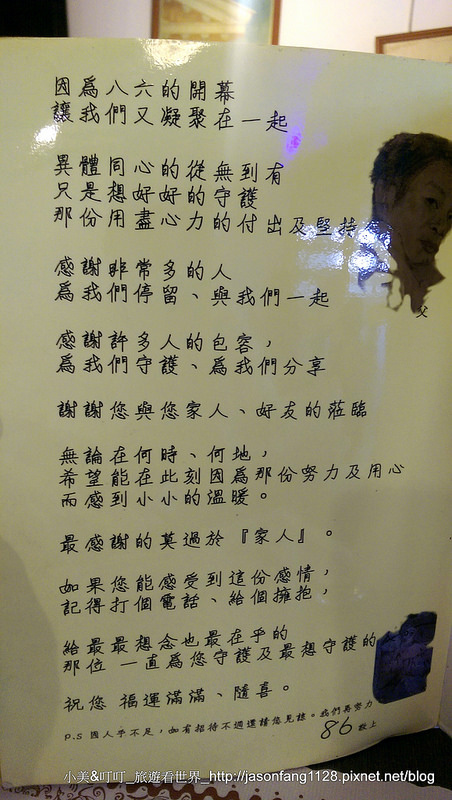 因為八六的開幕
讓我們又凝聚在一起
異體同心的從無到有
只是想好好的守護
那份用盡心力的付出及堅持
感謝非常多的人
為我們停留、與我們一起
父
感謝許多人的包容，
為我們守護、為我們分享
謝謝您與您家人、好友的蒞臨
無論在何時、何地，
希望能在此刻因為那份努力及用心
而感到小小的溫暖。
最感謝的莫過於『家人』。
如果您能感受到這份感情，
記得打個電話、給個擁抱，
給最最想念也最在乎的
那位 一直為您守護及最想守護的
祝您 福運滿滿、隨喜。
P.S 因人手不足，如有招待不週還請您見諒。我們再努力
86 敬上
小美&叮叮_旅遊看世界_http://jasonfang1128.pixnet.net/blog